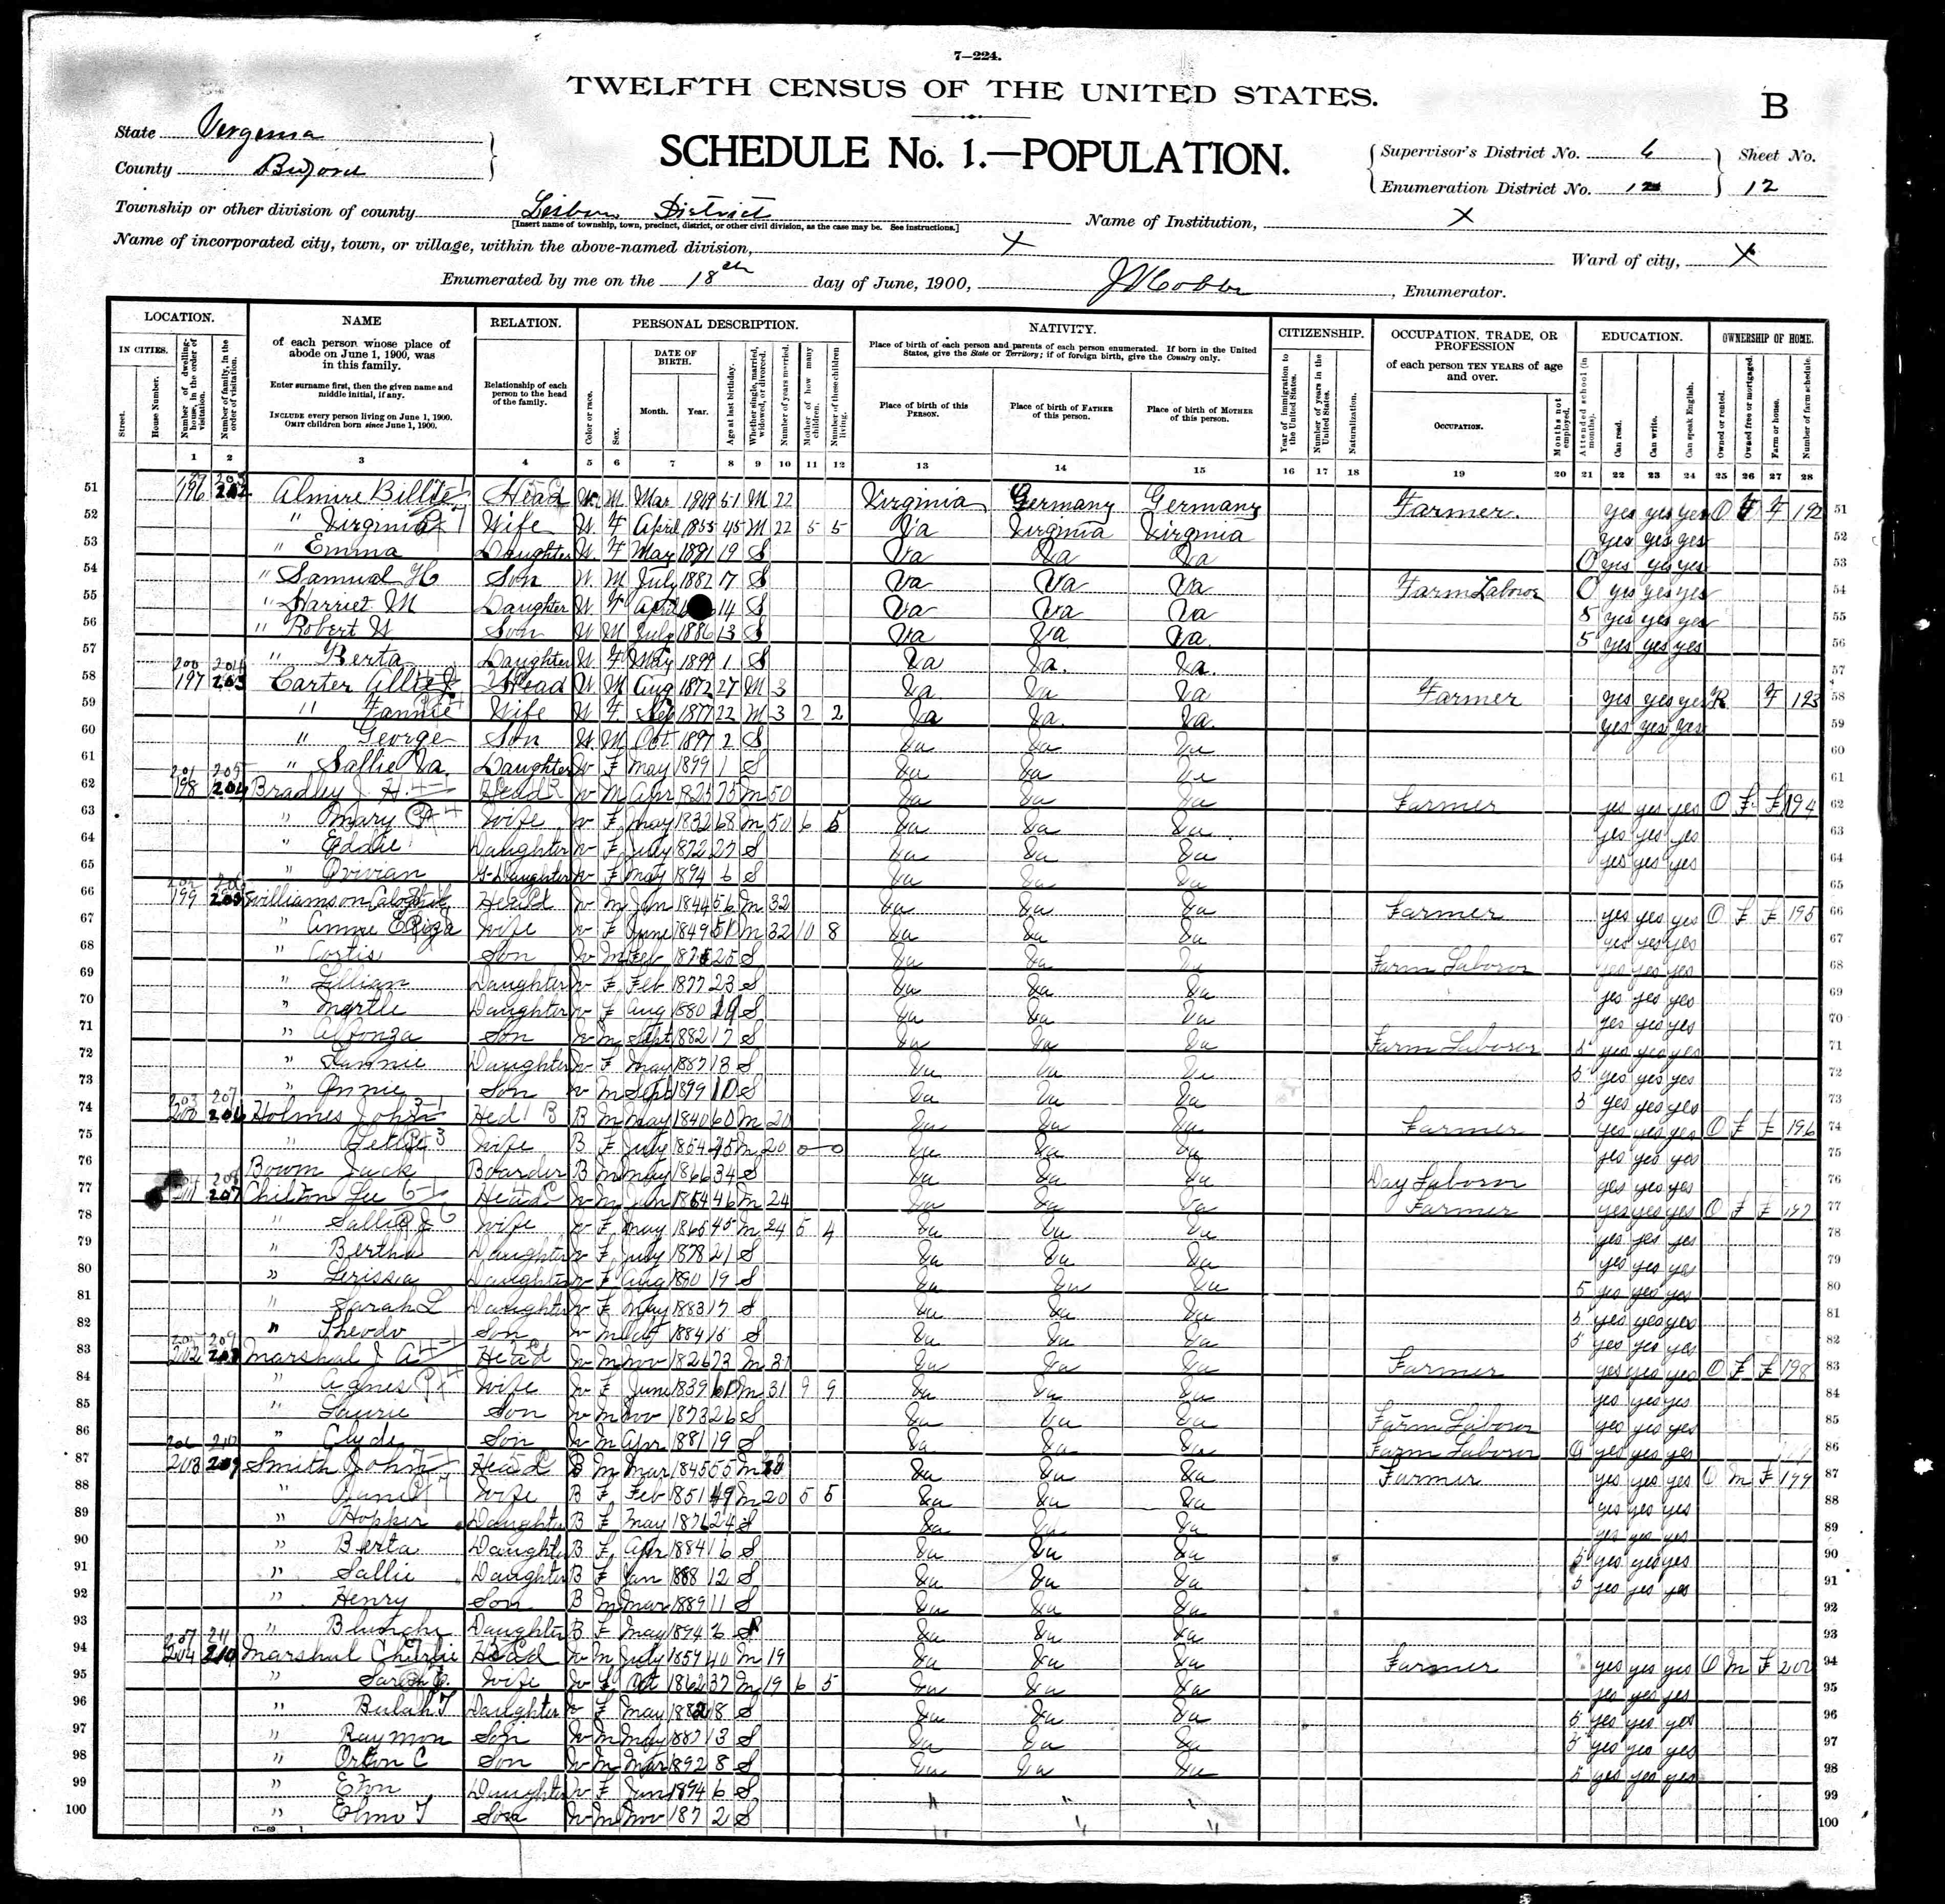 7—224.
TWELFTH CENSUS OF THE UNITED STATES.
B
State Virginia
SCHEDULE No. 1.—POPULATION.
County Bedford
Supervisor's District No. 6
Sheet No.
Enumeration District No. 12
12
Township or other division of county Lisbon District
[Insert name of township, town, precinct, district, or other civil division, as the case may be. See instructions.]
Name of Institution, X
Name of incorporated city, town, or village, within the above-named division, X
Ward of city, X
Enumerated by me on the 18th day of June, 1900, , Enumerator.
LOCATION. NAME RELATION. PERSONAL DESCRIPTION. NATIVITY. CITIZENSHIP. OCCUPATION, TRADE, OR PROFESSION EDUCATION. OWNERSHIP OF HOME.
IN CITIES. Street. House Number. Number of dwelling-house, in the order of visitation. Number of family, in the order of visitation.
of each person whose place of abode on June 1, 1900, was in this family.
Enter surname first, then the given name and middle initial, if any.
INCLUDE every person living on June 1, 1900. OMIT children born since June 1, 1900.
Relationship of each person to the head of the family.
Color or race. Sex. DATE OF BIRTH. Month. Year. Age at last birthday. Whether single, married, widowed, or divorced. Number of years married. Mother of how many children. Number of these children living.
Place of birth of each person and parents of each person enumerated. If born in the United States, give the State or Territory; if of foreign birth, give the Country only.
Place of birth of this PERSON. Place of birth of FATHER of this person. Place of birth of MOTHER of this person.
Year of immigration to the United States. Number of years in the United States. Naturalization.
of each person TEN YEARS of age and over.
OCCUPATION. Months not employed.
Attended school (in months). Can read. Can write. Can speak English.
Owned or rented. Owned free or mortgaged. Farm or house. Number of farm schedule.
1 2 3 4 5 6 7 8 9 10 11 12 13 14 15 16 17 18 19 20 21 22 23 24 25 26 27 28
51 196 202 Head W M Mar 51 M 22 Virginia Germany Germany Farmer. yes yes yes O F F 192 51
52 " Virginia Wife W. F April 1855 45 M 22 5 5 Va Virginia Virginia yes yes yes 52
53 " Emma Daughter W. F May 19 S Va Va Va 0 yes yes yes 53
54 " Samuel H Son W. M July 1882 17 S Va Va Va Farm Laboror 0 yes yes yes 54
55 " Harriet M Daughter W. F April 14 S Va Va Va 5 yes yes yes 55
56 " Robert W Son W M July 1886 13 S Va Va Va. 5 yes yes yes 56
57 " Berta Daughter W F May 1899 1 S Va Va. Va. 57
58 197 203 Carter Head W M Aug 1872 27 M 3 Va Va Va Farmer yes yes yes R F 193 58
59 " Fannie Wife W F Sep 1877 22 M 3 2 2 Va Va. Va. yes yes yes 59
60 " George Son W. M Oct 1897 2 S Va Va Va 60
61 " Sallie Va. Daughter W F May 1899 1 S Va Va Va 61
62 198 204 Bradley J. H. Head W M Apr 1825 75 M 50 Va Va Va Farmer yes yes yes O F F 194 62
63 " Mary Wife W F May 1832 68 M 50 6 5 Va Va Va yes yes yes 63
64 " Eddie Daughter W F July 1872 27 S Va Va Va yes yes yes 64
65 " G-Daughter W F May 1894 6 S Va Va Va 65
66 199 205 Williamson Head W M Jan 1844 56 M 32 Va Va Va Farmer yes yes yes O F F 195 66
67 " Annie Wife W F June 1849 M 32 10 8 Va Va Va yes yes yes 67
68 " Cortis Son W M Feb 25 S Va Va Va Farm Laboror yes yes yes 68
69 " Lillian Daughter W F Feb 1877 23 S Va Va Va yes yes yes 69
70 " Myrtle Daughter W F Aug 1880 19 S Va Va Va yes yes yes 70
71 " Alfonza Son W M Sept 1882 17 S Va Va Va Farm Laboror 5 yes yes yes 71
72 " Daughter W F May 1887 13 S Va Va Va 5 yes yes yes 72
73 " Son W M Sept 10 S Va Va Va 5 yes yes yes 73
74 206 Holmes John Hed B M May 1840 60 M 20 Va Va Va Farmer yes yes yes O F F 196 74
75 " Wife B F July 1854 45 M 20 0 0 Va Va Va yes yes yes 75
76 Jack Boarder B M May 1866 34 S Va Va Va Day Laboror yes yes yes 76
77 201 207 Chilton Lee Head W M Jan 46 M 24 Va Va Va Farmer yes yes yes O F F 197 77
78 " Sallie Wife W F May 45 M 24 5 4 Va Va Va yes yes yes 78
79 " Bertha Daughter W F July 1878 21 S Va Va Va yes yes yes 79
80 " Daughter W F Aug 19 S Va Va Va 5 yes yes yes 80
81 " Sarah L Daughter W F May 1883 17 S Va Va Va 5 yes yes yes 81
82 " Theodo Son W M 1884 15 S Va Va Va 5 yes yes yes 82
83 202 208 Marshal J A Head W M Nov 1826 73 M 31 Va Va Va Farmer yes yes yes O F F 198 83
84 " Agnes Wife W F June 1839 60 M 31 9 9 Va Va Va yes yes yes 84
85 " Laurie Son W M Nov 1873 26 S Va Va Va Farm Laboror yes yes yes 85
86 " Clyde Son W M Apr 1881 19 S Va Va Va Farm Laboror yes yes yes 86
87 203 209 Smith John Head B M Mar 1845 55 M 20 Va Va Va Farmer yes yes yes O M F 199 87
88 " Wife B F Feb 1851 49 M 20 5 5 Va Va Va yes yes yes 88
89 " Hopper Daughter B F May 1876 24 S Va Va Va yes yes yes 89
90 " Berta Daughter B F Apr 1884 16 S Va Va Va 5 yes yes yes 90
91 " Sallie Daughter B F Jan 1888 12 S Va Va Va 5 yes yes yes 91
92 " Henry Son B M Mar 1889 11 S Va Va Va 92
93 " Daughter B F May 1894 6 S Va Va Va 93
94 204 210 Marshal Charlie Head W M July 1859 40 M 19 Va Va Va Farmer yes yes yes O M F 200 94
95 " Sarah Wife W F Oct 1862 37 M 19 6 5 Va Va Va yes yes yes 95
96 " Bulah T Daughter W F May 1882 18 S Va Va Va 5 yes yes yes 96
97 " Raymon Son W M May 1887 13 S Va Va Va 5 yes yes yes 97
98 " Orlon C Son W M Mar 1892 8 S Va Va Va 5 yes yes yes 98
99 " Daughter W F Jan 1894 6 S " " " 99
100 " Elmo T Son W M Nov 2 S " " " 100